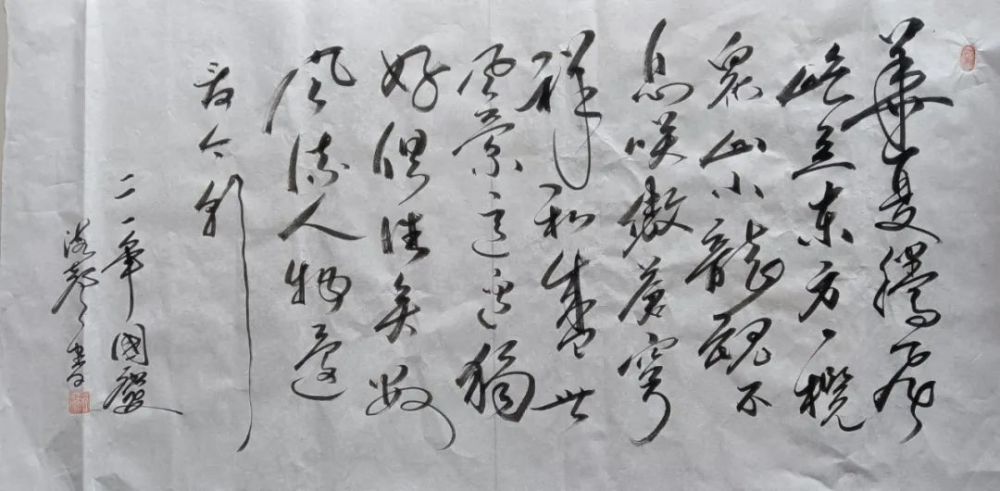 華夏騰飛
屹立東方一攬
衆山小龍魂不
息咲傲蒼穹
祥和盛世
風景這邊獨
好俱往矣數
風流人物還
看今朝
二一年國慶
書